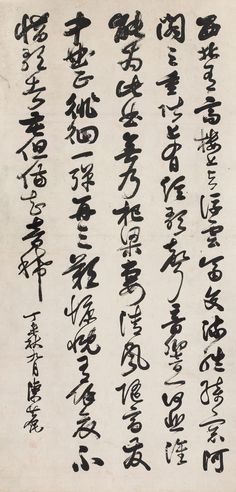 西北有高樓上与浮雲齊交疏結綺窗阿
閣三重階上有絃歌聲音響一何悲誰
能為此曲無乃杞梁妻清風隨商發
中曲正徘徊一彈再三歎慷慨有餘哀不
惜歌者苦但傷知音稀